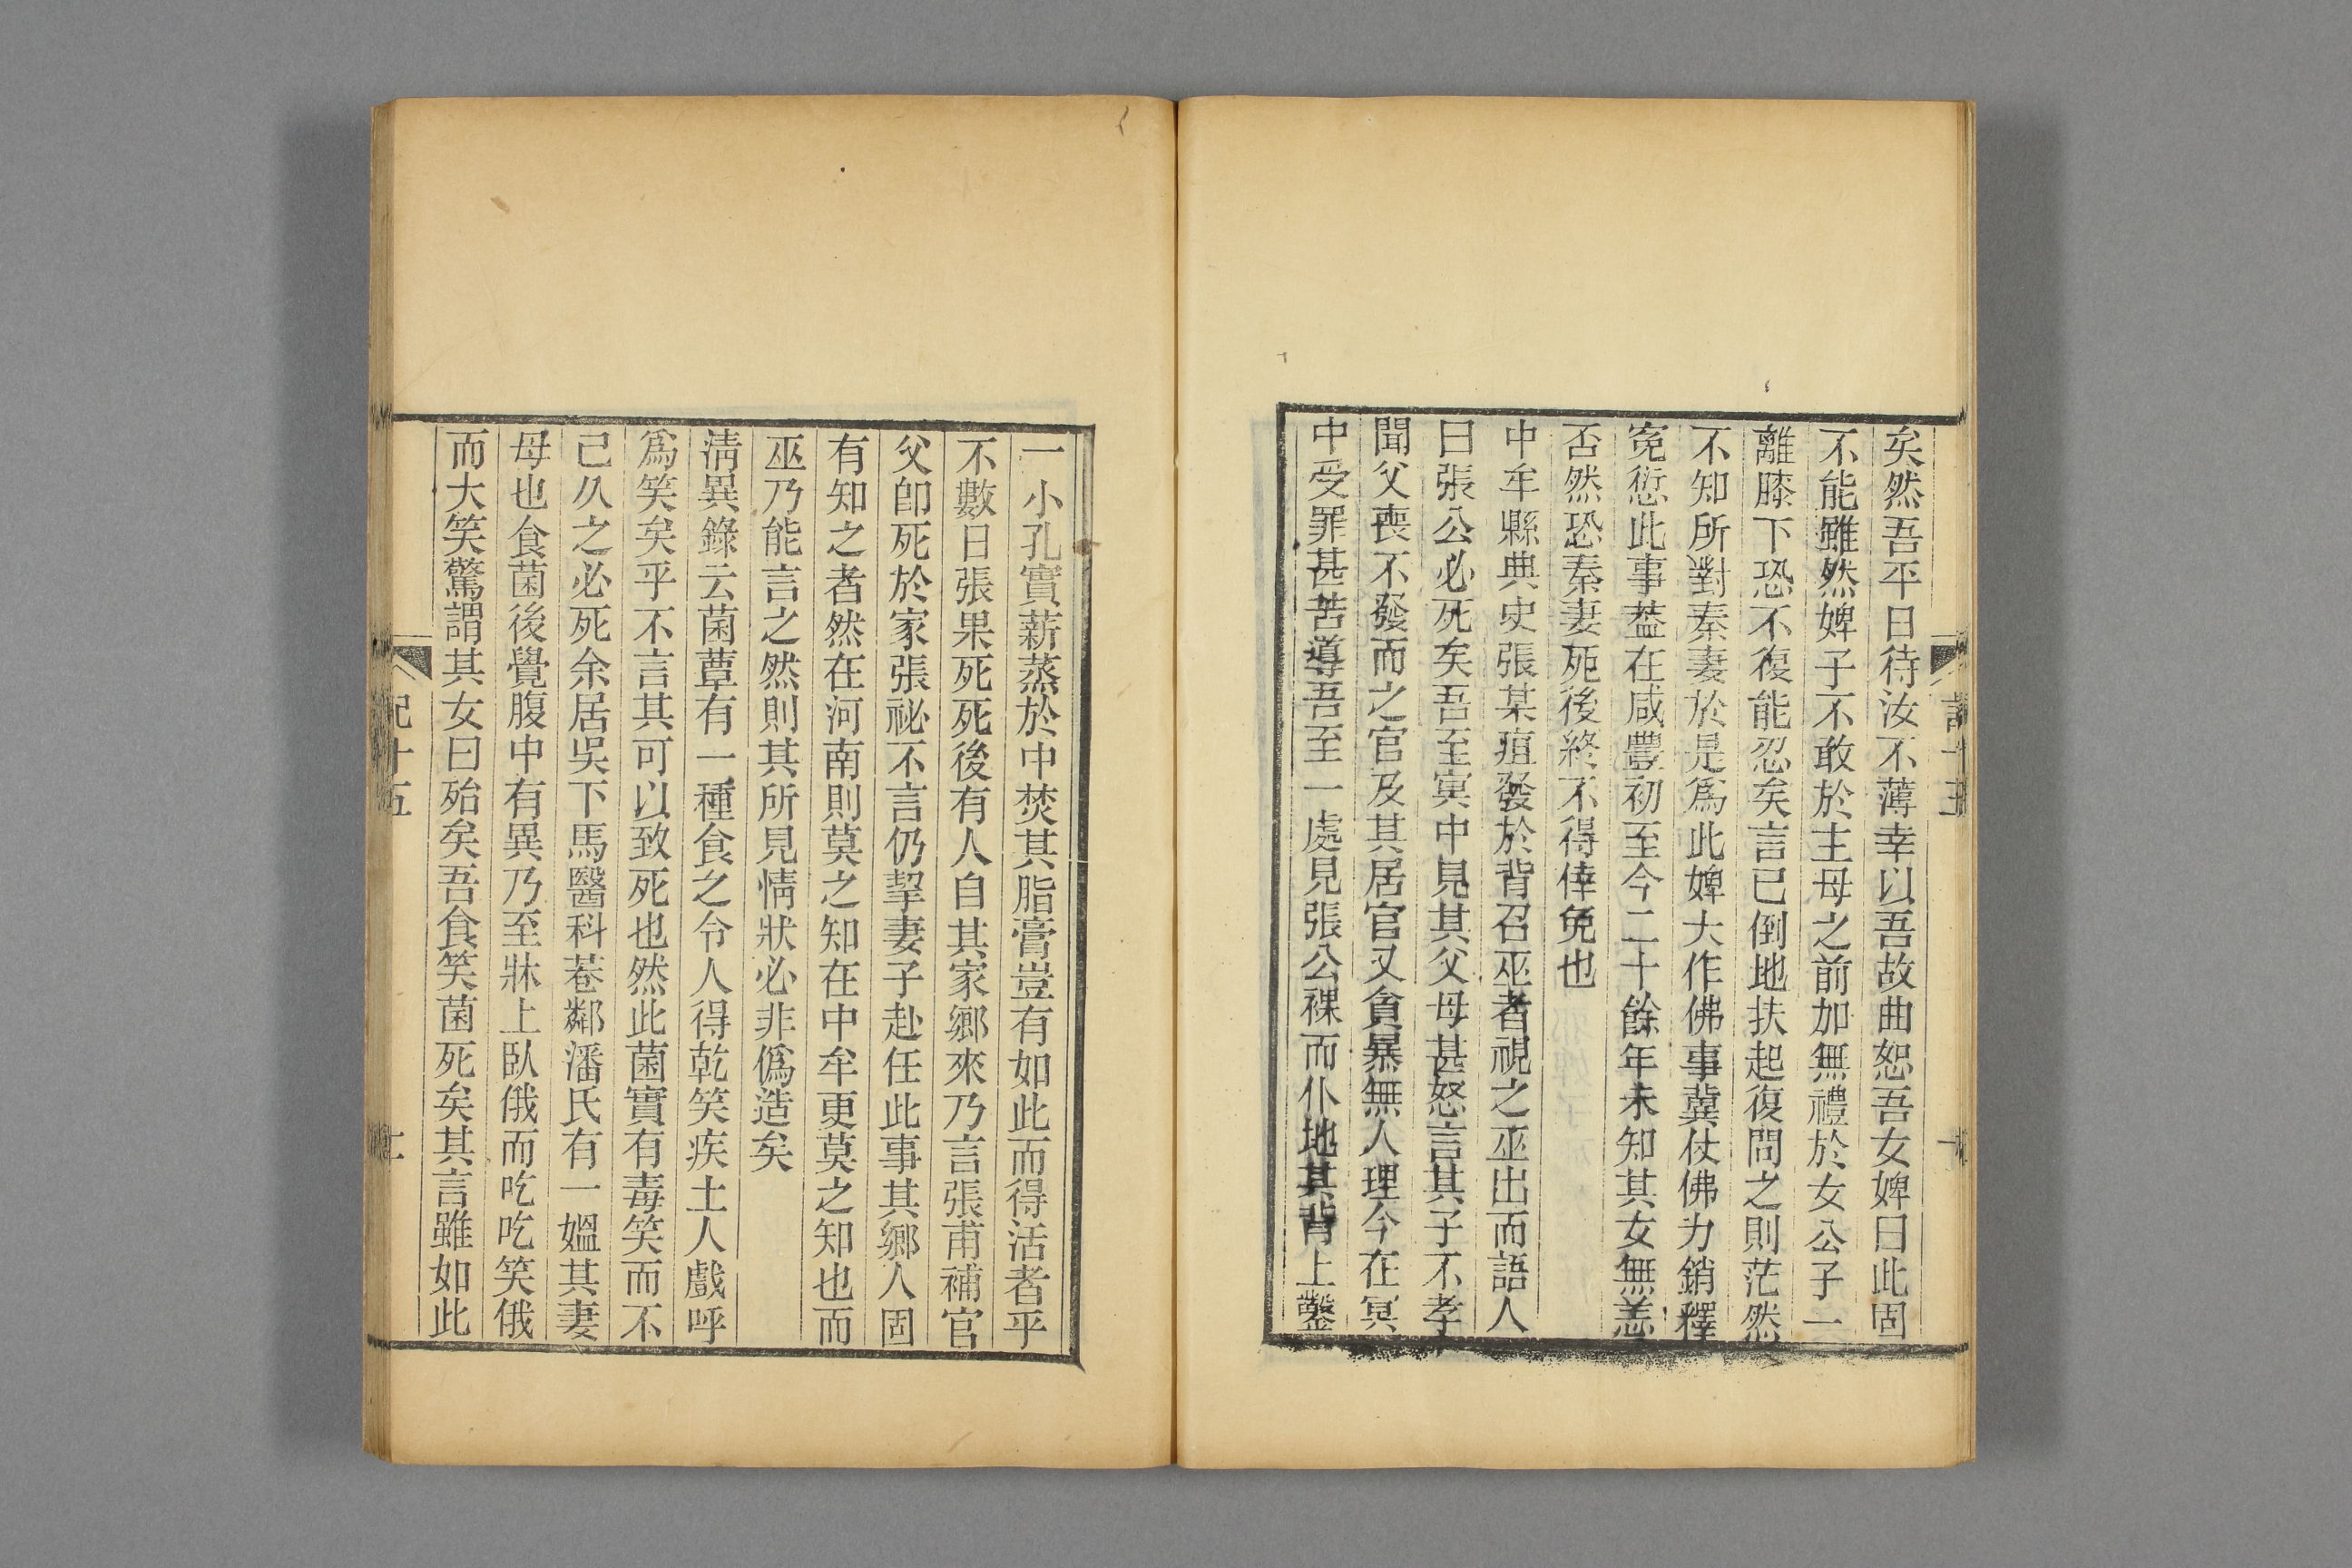 矣然吾平日待汝不薄幸以吾故曲恕吾女婢曰此固
不能雖然婢子不敢於主母之前加無禮於女公子一
離膝下恐不復能忍矣言已倒地扶起復問之則茫然
不知所對秦妻於是爲此婢大作佛事冀仗佛力銷釋
寃愆此事葢在咸豐初至今二十餘年未知其女無恙
否然恐秦妻死後終不得倖免也
中牟縣典史張某疽發於背召巫者視之巫出而語人
曰張公必死矣吾至冥中見其父母甚怒言其子不孝
聞父喪不發而之官及其居官又貪暴無人理今在冥
中受罪甚苦導吾至一處見張公裸而仆地其背上鑿
一小孔實薪蒸於中焚其脂膏豈有如此而得活者乎
不數日張果死死後有人自其家鄉來乃言張甫補官
父卽死於家張祕不言仍挈妻子赴任此事其鄉人固
有知之者然在河南則莫之知在中牟更莫之知也而
巫乃能言之然則其所見情狀必非僞造矣
淸異錄云菌蕈有一種食之令人得乾笑疾土人戲呼
爲笑矣乎不言其可以致死也然此菌實有毒笑而不
己久之必死余居吳下馬醫科巷鄰潘氏有一媼其妻
母也食菌後覺腹中有異乃至牀上臥俄而吃吃笑俄
而大笑驚謂其女曰殆矣吾食笑菌死矣其言雖如此